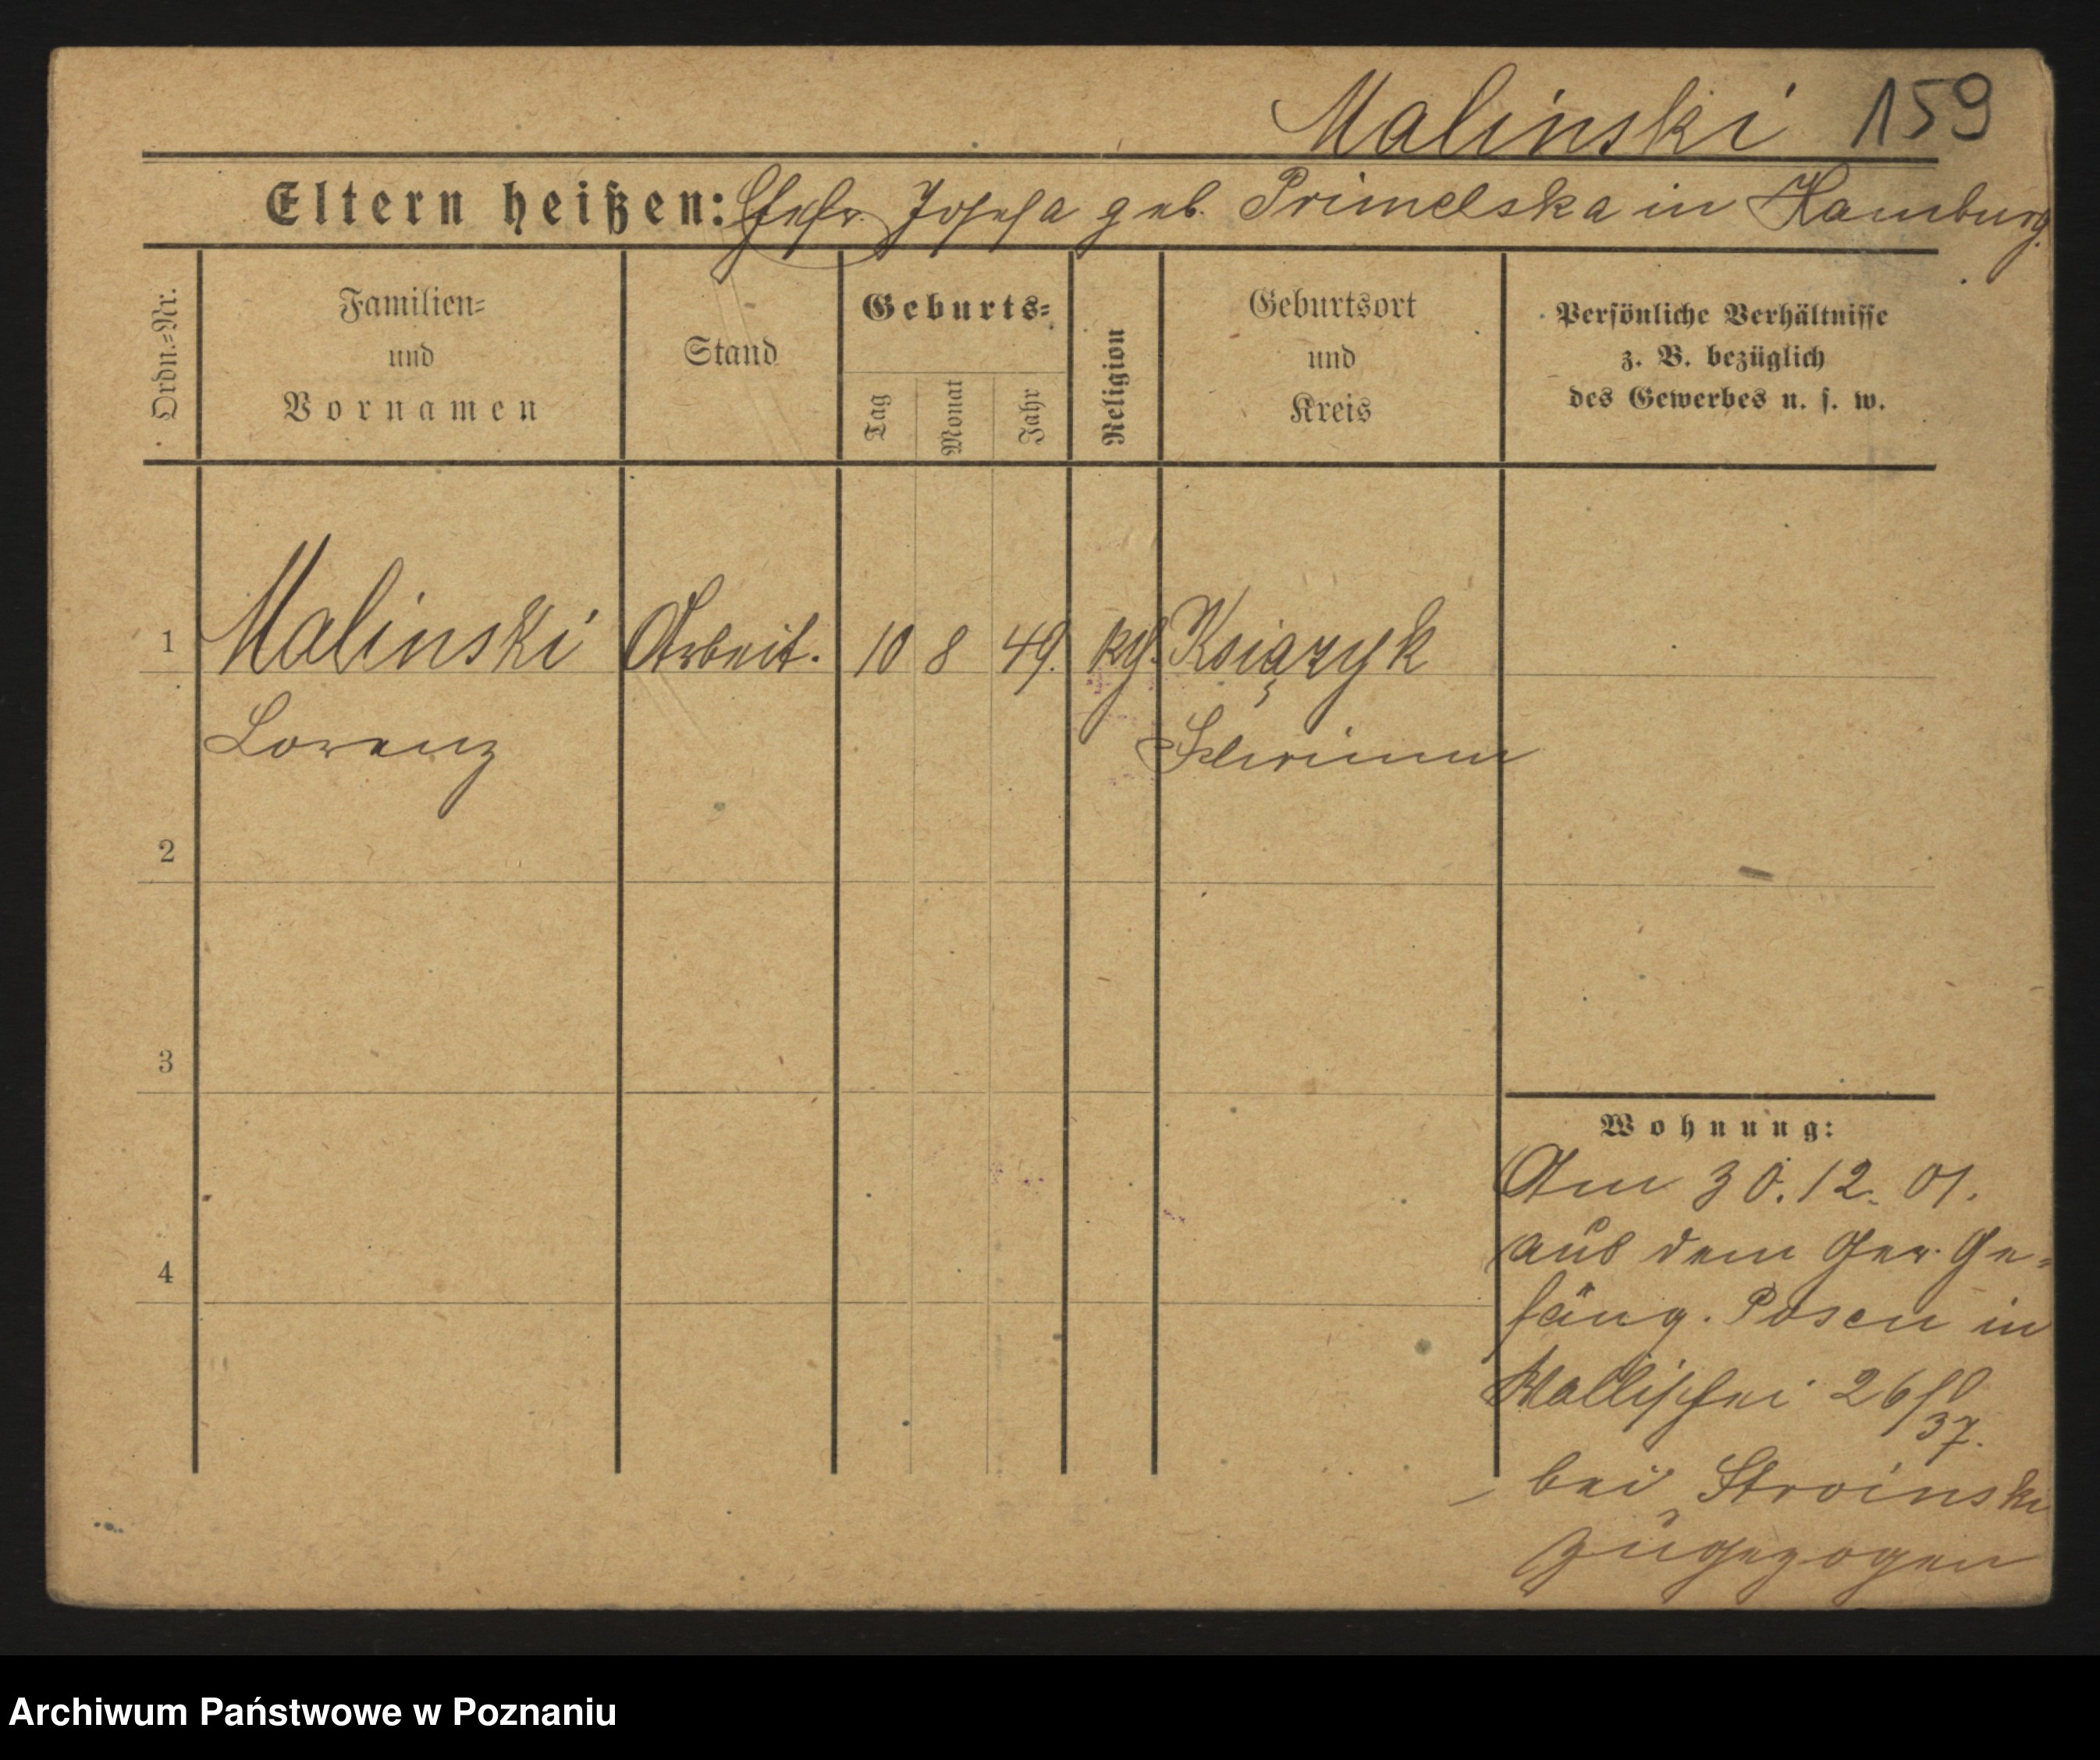 Malinski 159
Eltern heißen: Ehefr. Josefa geb. Primelska in Hamburg.
Ordn.=Nr.
Familien=
und
Vornamen
Stand
Geburts=
Tag
Monat
Jahr
Religion
Geburtsort
und
Kreis
Persönliche Verhältnisse
z. B. bezüglich
des Gewerbes u. s. w.
1 Malinski Arbeit. 10 8 49. kth. Książyk
Lorenz Schrimm
2
3
4
Wohnung:
Am 30.12.01.
aus dem Ger. Ge=
fäng. Posen in
Wallischei 26/
37.
bei Stroinski
zugezogen
Archiwum Państwowe w Poznaniu